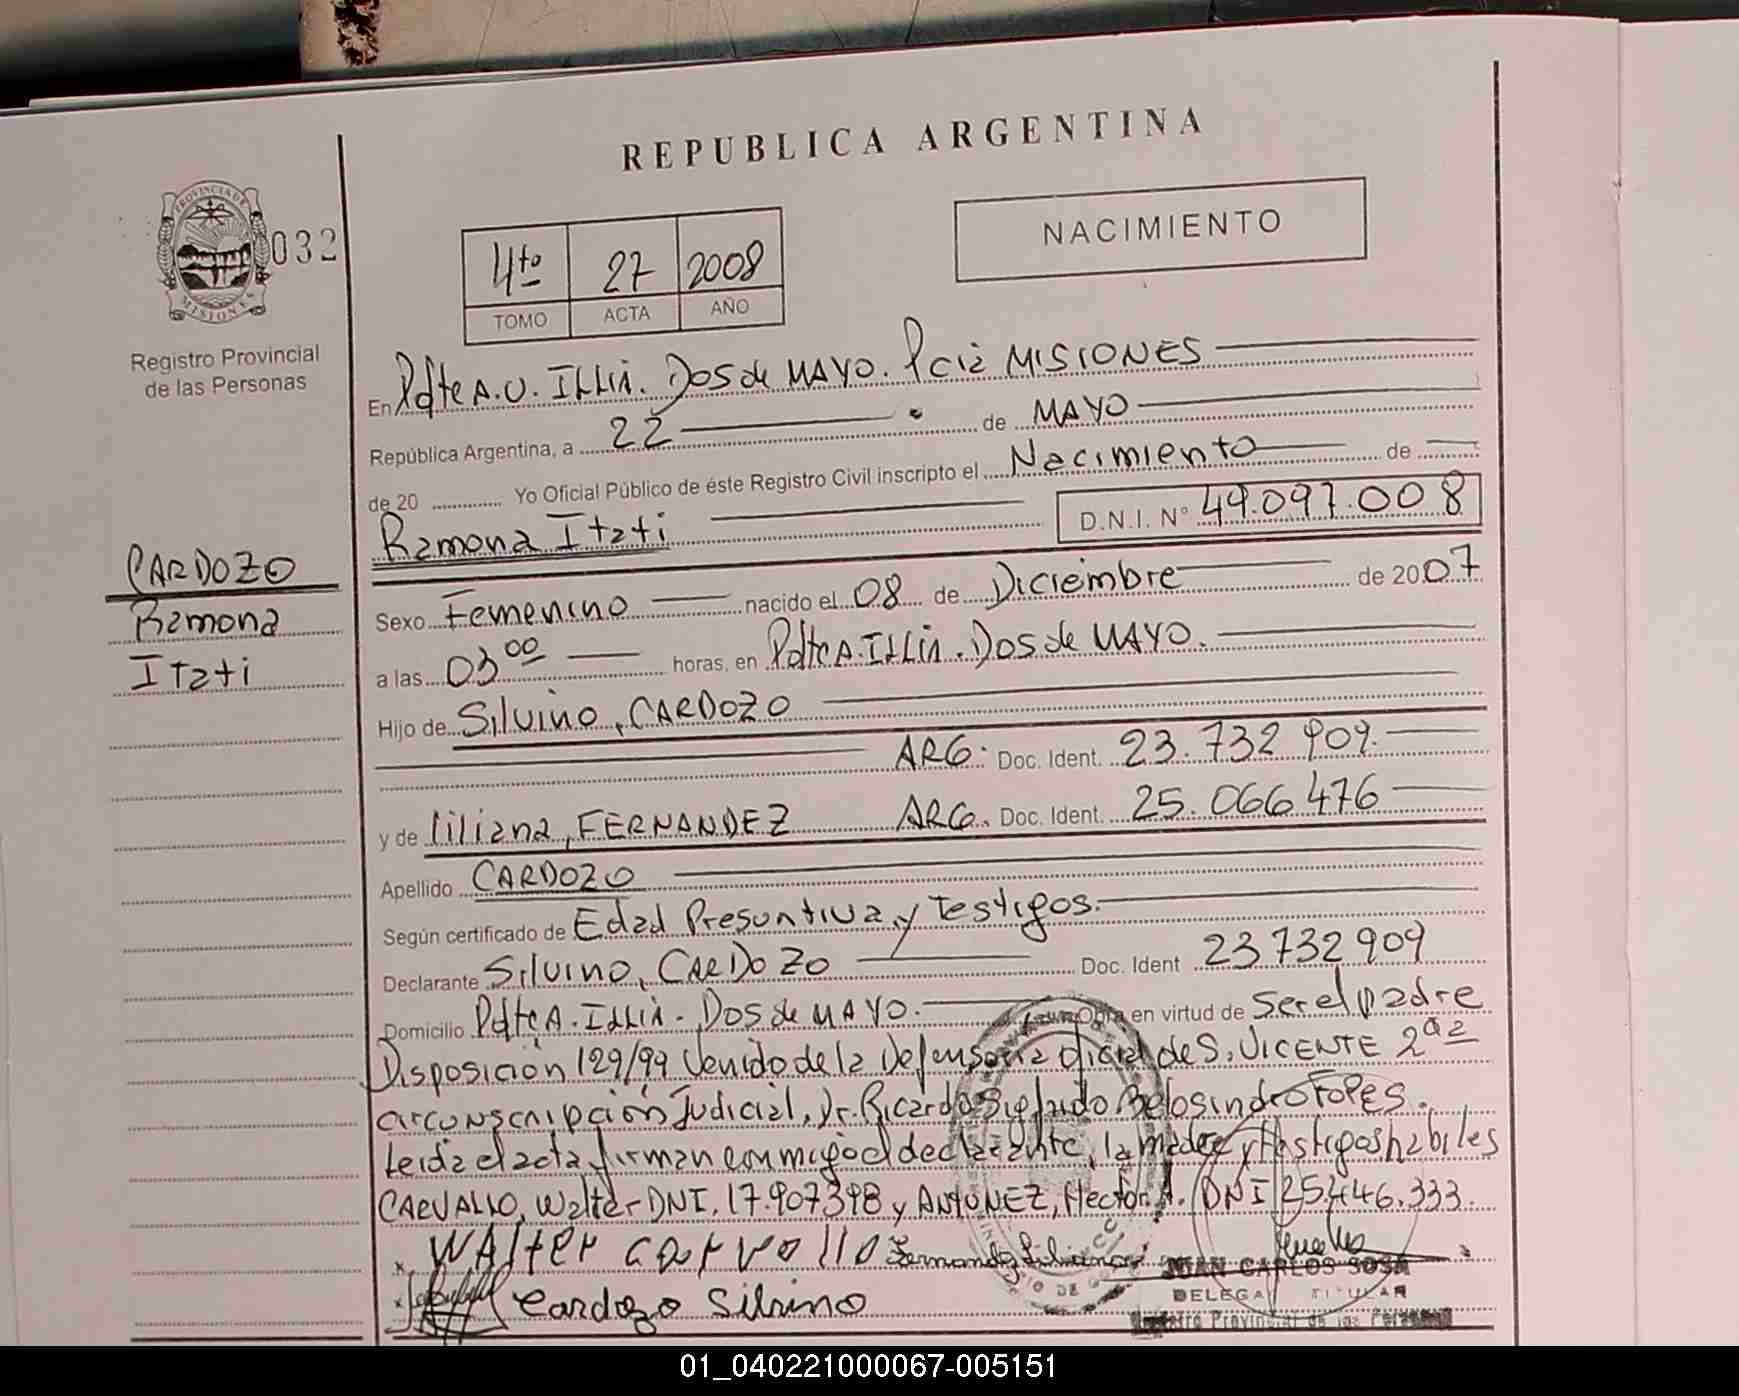 REPUBLICA ARGENTINA
PROVINCIA DE
MISIONES
032
Registro Provincial
de las Personas
4to 27 2008
TOMO ACTA AÑO
NACIMIENTO
En Pdte A.U. ILLIA. Dos de MAYO. Pcia MISIONES
República Argentina, a 22 de MAYO
de 20 Yo Oficial Público de éste Registro Civil inscripto el Nacimiento de
Ramona Itati D.N.I. Nº 49.097.008
CARDOZO
Ramona
Itati
Sexo Femenino nacido el 08 de Diciembre de 2007
a las 03 00 horas, en Pdte A. ILLIA. Dos de MAYO.
Hijo de Silvino, CARDOZO
ARG. Doc. Ident. 23.732 909.
y de liliana, FERNANDEZ ARG. Doc. Ident. 25.066.476
Apellido CARDOZO
Según certificado de Edad Presuntiva y Testigos.
Declarante Silvino, CARDOZO Doc. Ident 23732909
Domicilio Pdte A. ILLIA. Dos de MAYO. Obra en virtud de Ser el padre
Disposición 129/99 Venido de la Defensoria Oficial de S. VICENTE 2da
circonscripción Judicial, Dr. Ricardo
Leida el acta, firman conmigo el declarante, la madre y testigos habiles
CARVALLO, Walter DNI. 17.907398 y ANTUNEZ, Hector A. DNI 25.446.333.
x WAlter carvallo Fernandez Liliana
x Cardozo Silvino
JUAN CARLOS SOSA
DELEGA TITULAR
Registro Provincial de las Personas
01_040221000067-005151